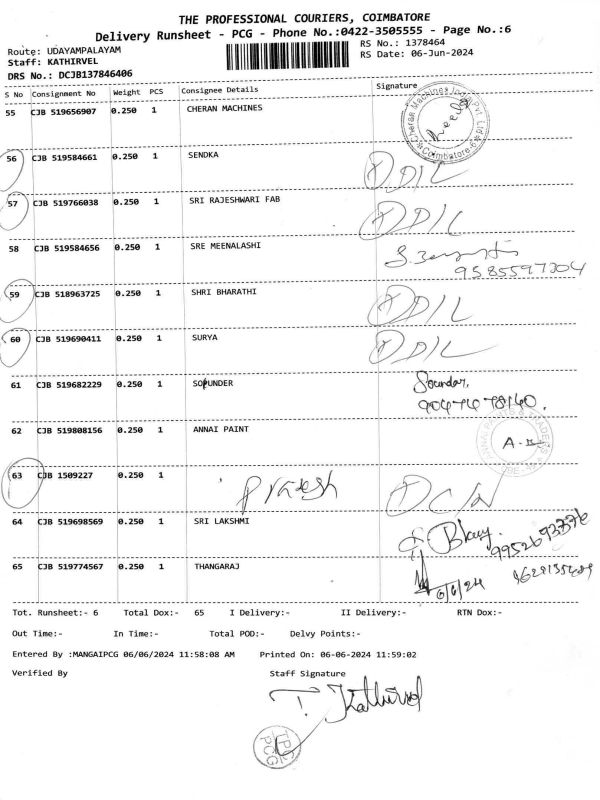 THE PROFESSIONAL COURIERS, COIMBATORE
Delivery Runsheet - PCG - Phone No.:0422-3505555 - Page No.:6
Route: UDAYAMPALAYAM RS No.: 1378464
Staff: KATHIRVEL RS Date: 06-Jun-2024
DRS No.: DCJB137846406
S No Consignment No Weight PCS Consignee Details Signature
55 CJB 519656907 0.250 1 CHERAN MACHINES
56 CJB 519584661 0.250 1 SENDKA D/L
57 CJB 519766038 0.250 1 SRI RAJESHWARI FAB D/L
58 CJB 519584656 0.250 1 SRE MEENALASHI
9585597304
59 CJB 518963725 0.250 1 SHRI BHARATHI D/L
60 CJB 519690411 0.250 1 SURYA D/L
61 CJB 519682229 0.250 1 SOPUNDER Soundar,
62 CJB 519808156 0.250 1 ANNAI PAINT
63 CJB 1509227 0.250 1
64 CJB 519698569 0.250 1 SRI LAKSHMI
65 CJB 519774567 0.250 1 THANGARAJ 6/6/24
Tot. Runsheet:- 6 Total Dox:- 65 I Delivery:- II Delivery:- RTN Dox:-
Out Time:- In Time:- Total POD:- Delvy Points:-
Entered By :MANGAIPCG 06/06/2024 11:58:08 AM Printed On: 06-06-2024 11:59:02
Verified By Staff Signature
T. Kathirvel
TPC
PCG